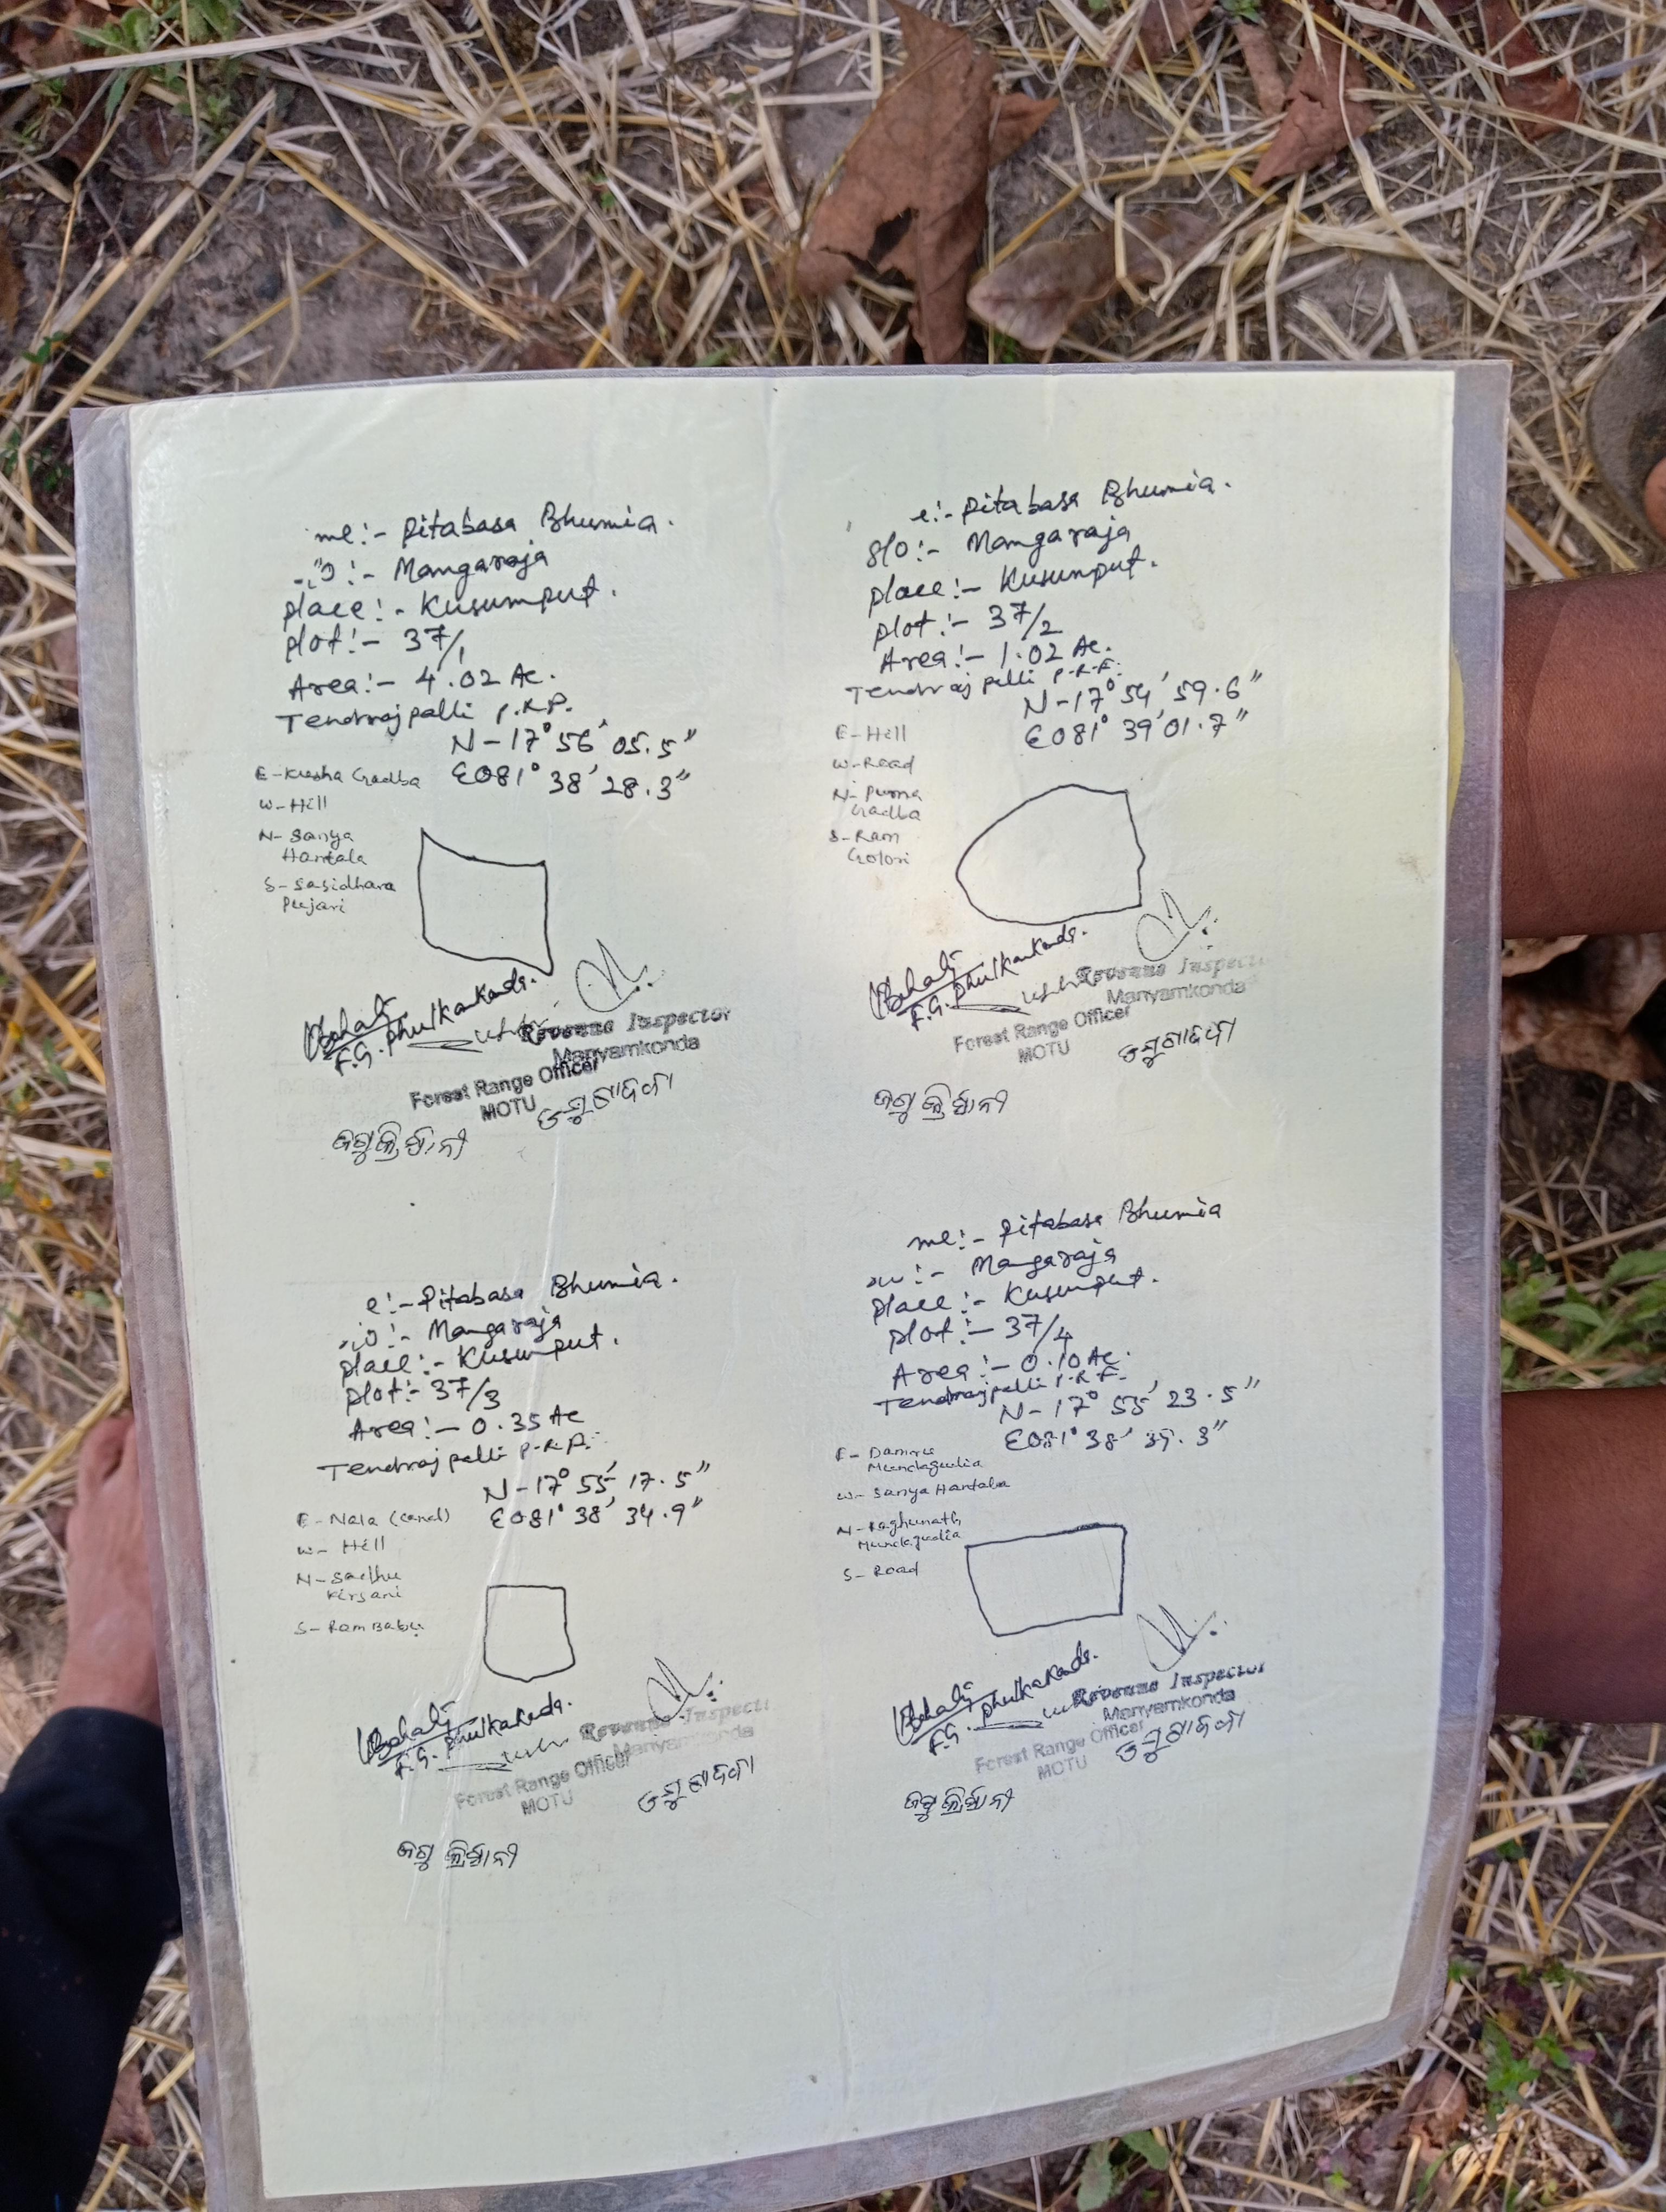 me:- Pitabasa Bhumia.
:- Mangaraja
place:- Kusumput.
plot:- 37/1
Area:- 4.02 Ac.
Tendraj palli P.R.F.
N-17° 56' 05.5"
E081° 38' 28.3"
E- Kusha Gadba
W- Hill
N- Sanya
Hantala
S- Sasidhara
Pujari
F.G. Phulkakads.
Revenue Inspector
Manyamkonda
Forest Range Officer
MOTU
e:- Pitabasa Bhumia.
S/o:- Mangaraja
place:- Kusumput.
plot:- 37/2
Area:- 1.02 Ac.
Tendraj palli P.R.F.
N-17° 54' 59.6"
E081° 39' 01.7"
E- Hill
W- Road
N- Purna
Gadba
S- Ram
Golori
F.G. Phulkakads.
Revenue Inspect
Manyamkonda
Forest Range Officer
MOTU
e:- Pitabasa Bhumia.
:- Mangaraja
place:- Kusumput.
plot:- 37/3
Area:- 0.35 Ac
Tendraj palli P.R.F.
N-17° 55' 17.5"
E081° 38' 34.9"
E- Nala (canal)
W- Hill
N- Sadhu
Kirsani
S- Ram Babu
F.G. Phulkakads.
Revenue Inspect
Manyamkonda
Forest Range Officer
MOTU
me:- Pitabasa Bhumia
:- Mangaraja
place:- Kusumput.
plot:- 37/4
Area:- 0.10 Ac.
Tendraj palli P.R.F.
N-17° 55' 23.5"
E081° 38' 39.3"
E- Damru
Mundaguдia
W- Sanya Hantala
N- Raghunath
Mundagudia
S- Road
F.G. Phulkakads.
Revenue Inspector
Manyamkonda
Forest Range Officer
MOTU